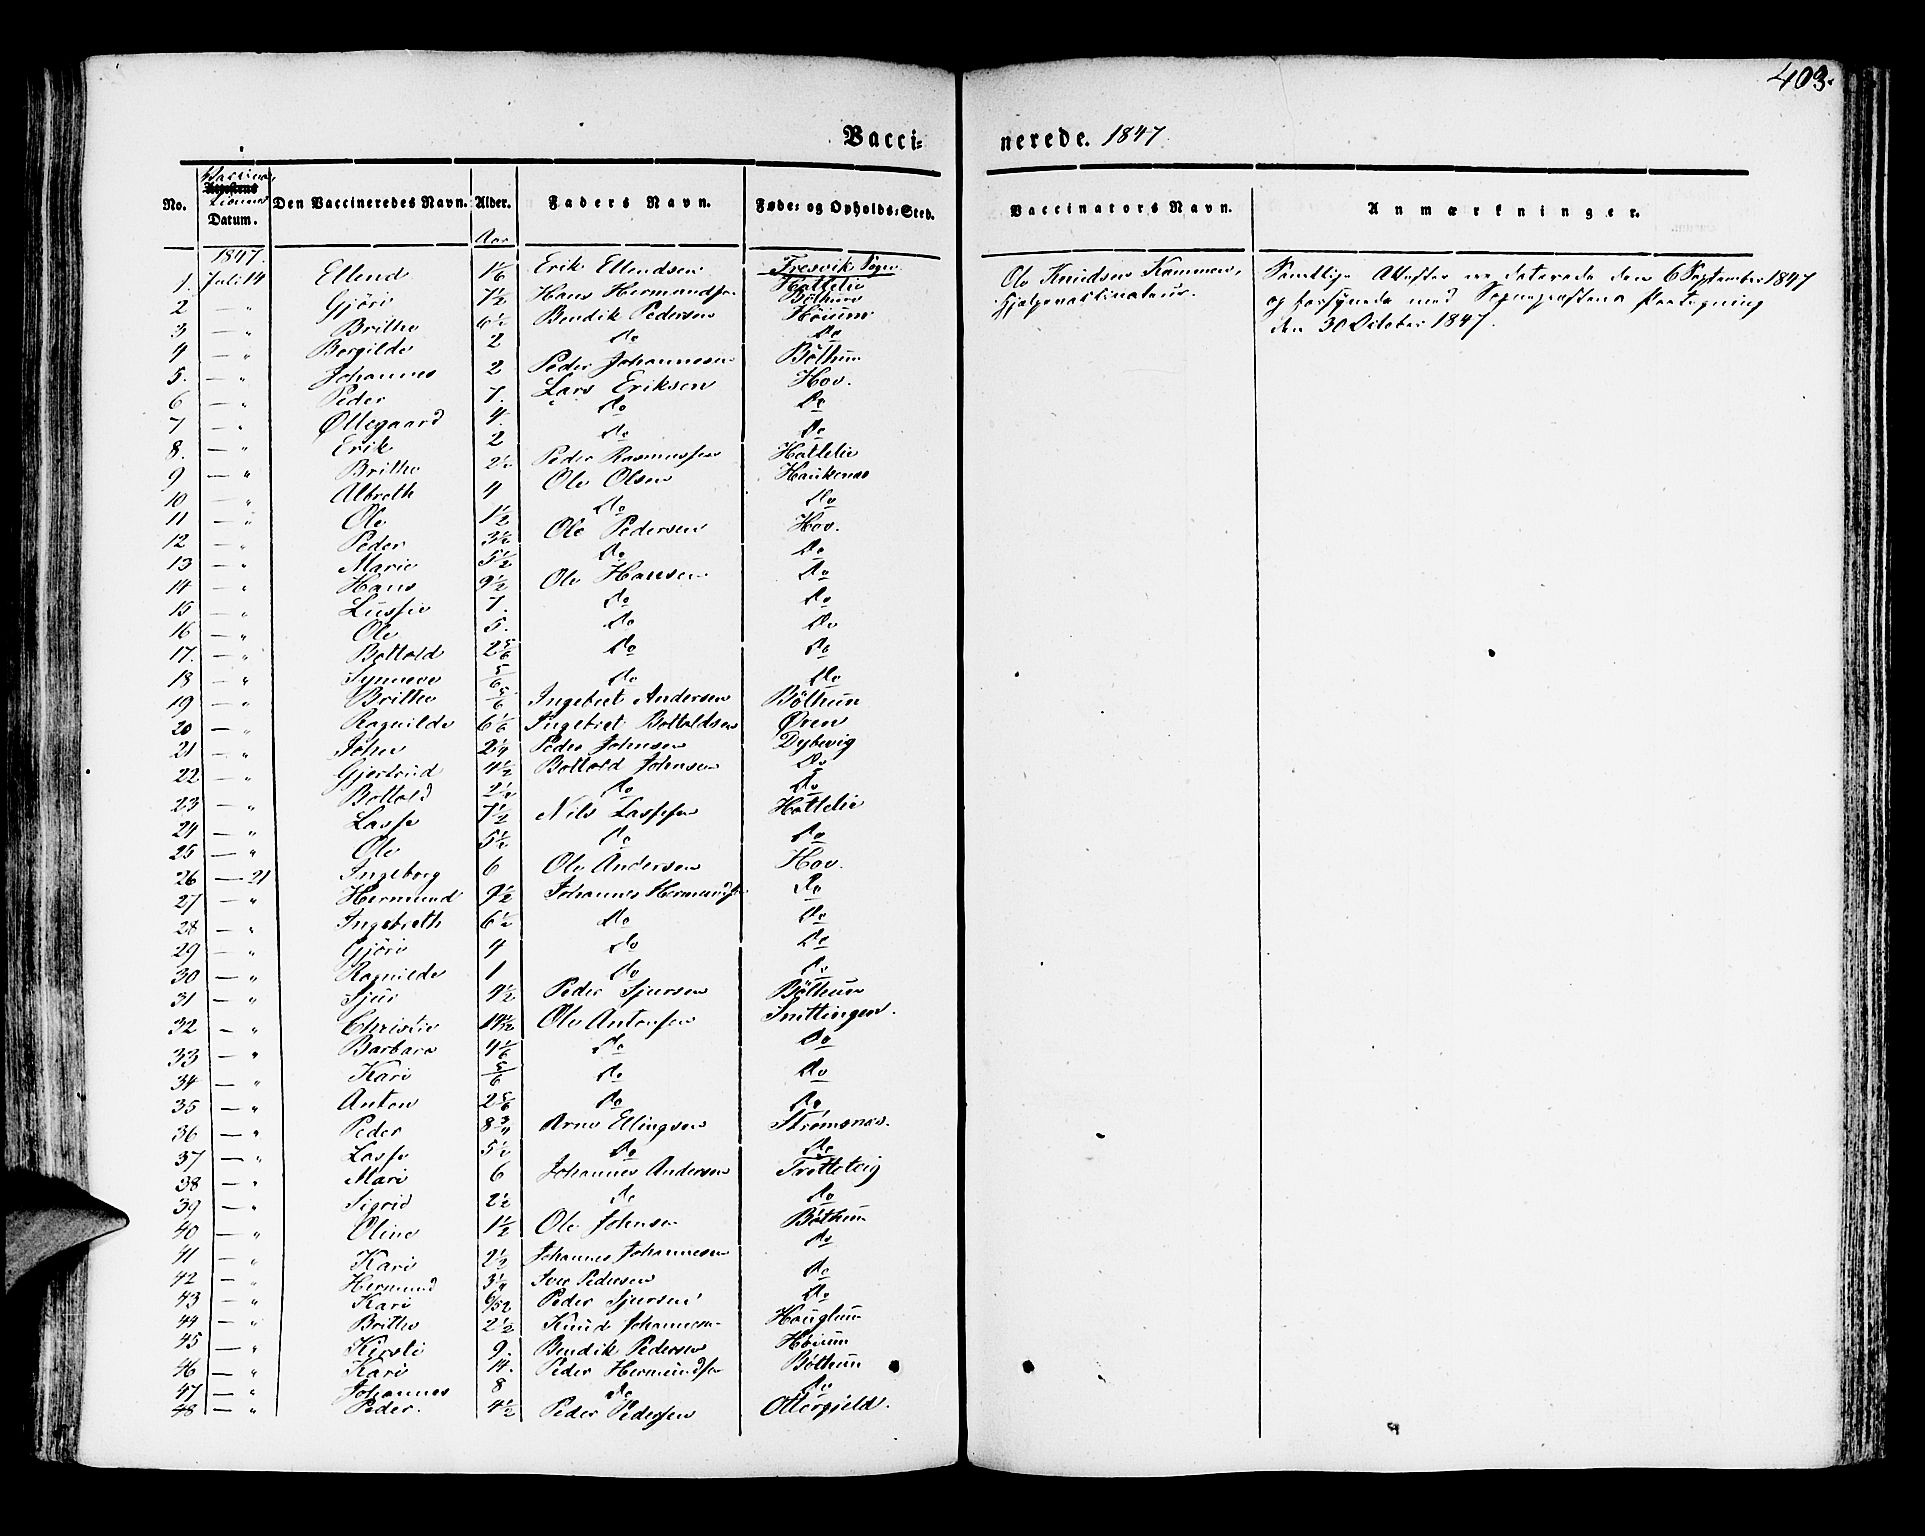 403.
Vacci- nerede. 1847
No. Vaccinationens Datum. Den Vaccineredes Navn. Alder. Faders Navn. Føde- og Opholds-Sted. Vaccinators Navn. Anmærkninger.
Aar
1847. Fresvik Sogn
1. Juli 14 Ellend 1 1/6 Erik Ellendsen Hattelie Ole Knudsen Hjelpevaccinateur. Samtlige Attester ere daterede den 6 September 1847
2 — " Gjøri 7 1/2 Hans Hermundsen Böthun og forsynede med Sognepræstens Paategning
3 — " Brithe 6 1/2 Bendik Pedersen Høium den 30 October 1847.
4 — " Borgilde 2 do do
5. — " Johannes 2 Peder Johannesen Böthun
6 — " Peder 7. Lars Eriksen Hov.
7 — " Øllegaard 4. do do
8. — " Erik 2 do do
9 — " Brithe 2 1/2 Peder Rasmussen Hattelie
10 — " Albreth 4 Ole Olsen Haukenæs
11 — " Ole 1 1/2 do do
12 — " Peder 3 1/2 Ole Pedersen Hov.
13 — " Marie 5 1/2 do do
14 — " Hans 9 1/2 Ole Hansen do
15 — " Lussie 7. do do
16 — " Ole 5. do do
17. — " Bottold 2 5/6 do do
18 — " Synneve 5/6 do do
19 — " Brithe 5/6 Ingebret Andersen Böthun
20 — " Ragnilde 6 1/6 Ingebret Bottoldsen Øren
21 — " Johan 2 1/4 Peder Johnsen Dybevig
22 — " Gjertrud 4 1/2 Bottold Johnsen do
23 — " Bottold 2 1/2 do do
24 — " Lasse 7 1/2 Nils Lassesen Hattelie
25 — " Ole 5 1/2 do do
26 — 21 Ingeborg 6 Ole Andersen Hov.
27 — " Hermund 9 1/2 Johannes Hermundsen do
28 — " Ingebreth 6 1/2 do do
29 — " Gjøri 4 do do
30 — " Ragnilde 1 do do
31 — " Sjur 4 1/2 Peder Sjursen Böthun
32 — " Christie Ole Antonsen Snittingen.
33 — " Barbara 4 1/6 do do
34 — " Kari 5/6 do do
35 — " Anton 2 5/6 do do
36 — " Peder 8 3/4 Arne Ellingsen Strømsnæs.
37 — " Lasse 5 1/2 do do
38 — " Mari 6 Johannes Andersen Trotteteig
39 — " Sigrid 2 1/2 do do
40 — " Oline 1 1/2 Ole Johnsen Böthun
41 — " Kari 2 1/2 Johannes Johannesen do
42 — " Hermund 3 1/4 Iver Pedersen do
43 — " Kari 6/52 Peder Sjursen do
44 — " Brithe 2 1/2 Knud Johannesen Houglum
45 — " Kirsti 9. Bendik Pedersen Høium
46 — " Kari 14. Peder Hermundsen Böthun
47 — " Johannes 8 do do
48 — " Peder. 4 1/2 Peder Pedersen Ottersjeld.